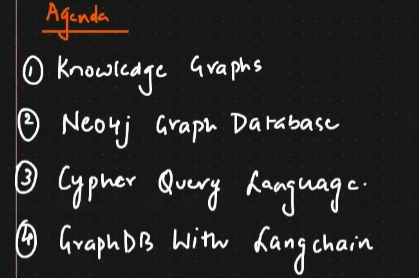 Agenda
① Knowledge Graphs
② Neo4j Graph Database
③ Cypher Query Language.
④ GraphDB With Langchain